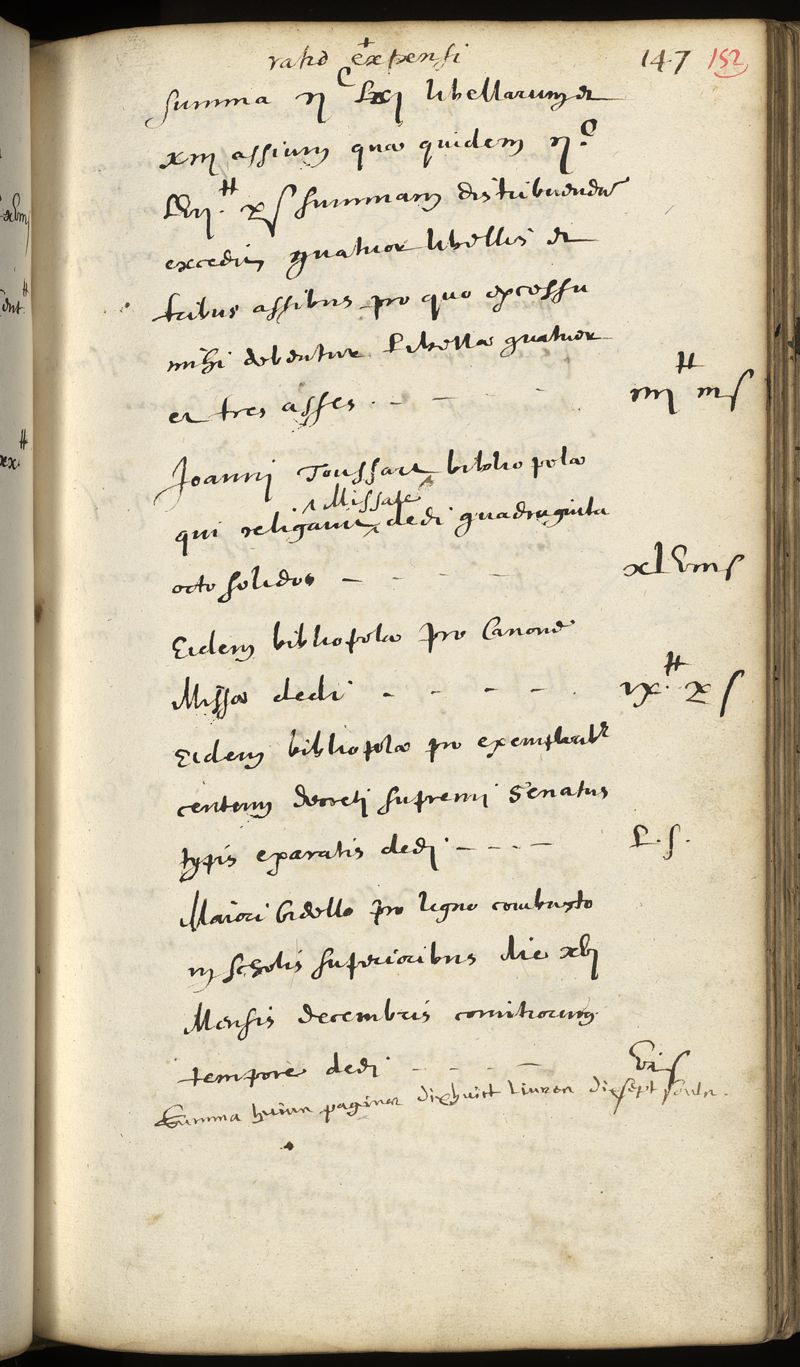 ratio expensi 147 152
summa ijC Lxj libellarum et
xiij assium quæ quidem ijC
Lvij ₶ x s summam distribuendæ
excedit quatuor libellis et
tribus assibus pro quo excessu
mihi debentur Libellæ quatuor
et tres asses. - - - - iiij ₶ iij s
Joanni Toussart bibliopolæ
Missale
qui religavit dedi quadraginta
octo solidos - - - - xlviij s
Eidem bibliopolæ pro Canone
Missæ dedi - - - - ix ₶ x s
Eidem bibliopolæ pro exemplarib9
centum decreti supremi Senatus
typis exaratis dedi - - - - L. s.
Maiori bidello pro ligno combusto
in scholis superioribus die xvj
Mensis decembris comitiorum
tempore dedi - - - - vi s
Summa huius paginæ dixhuict livres dixsept soulz.